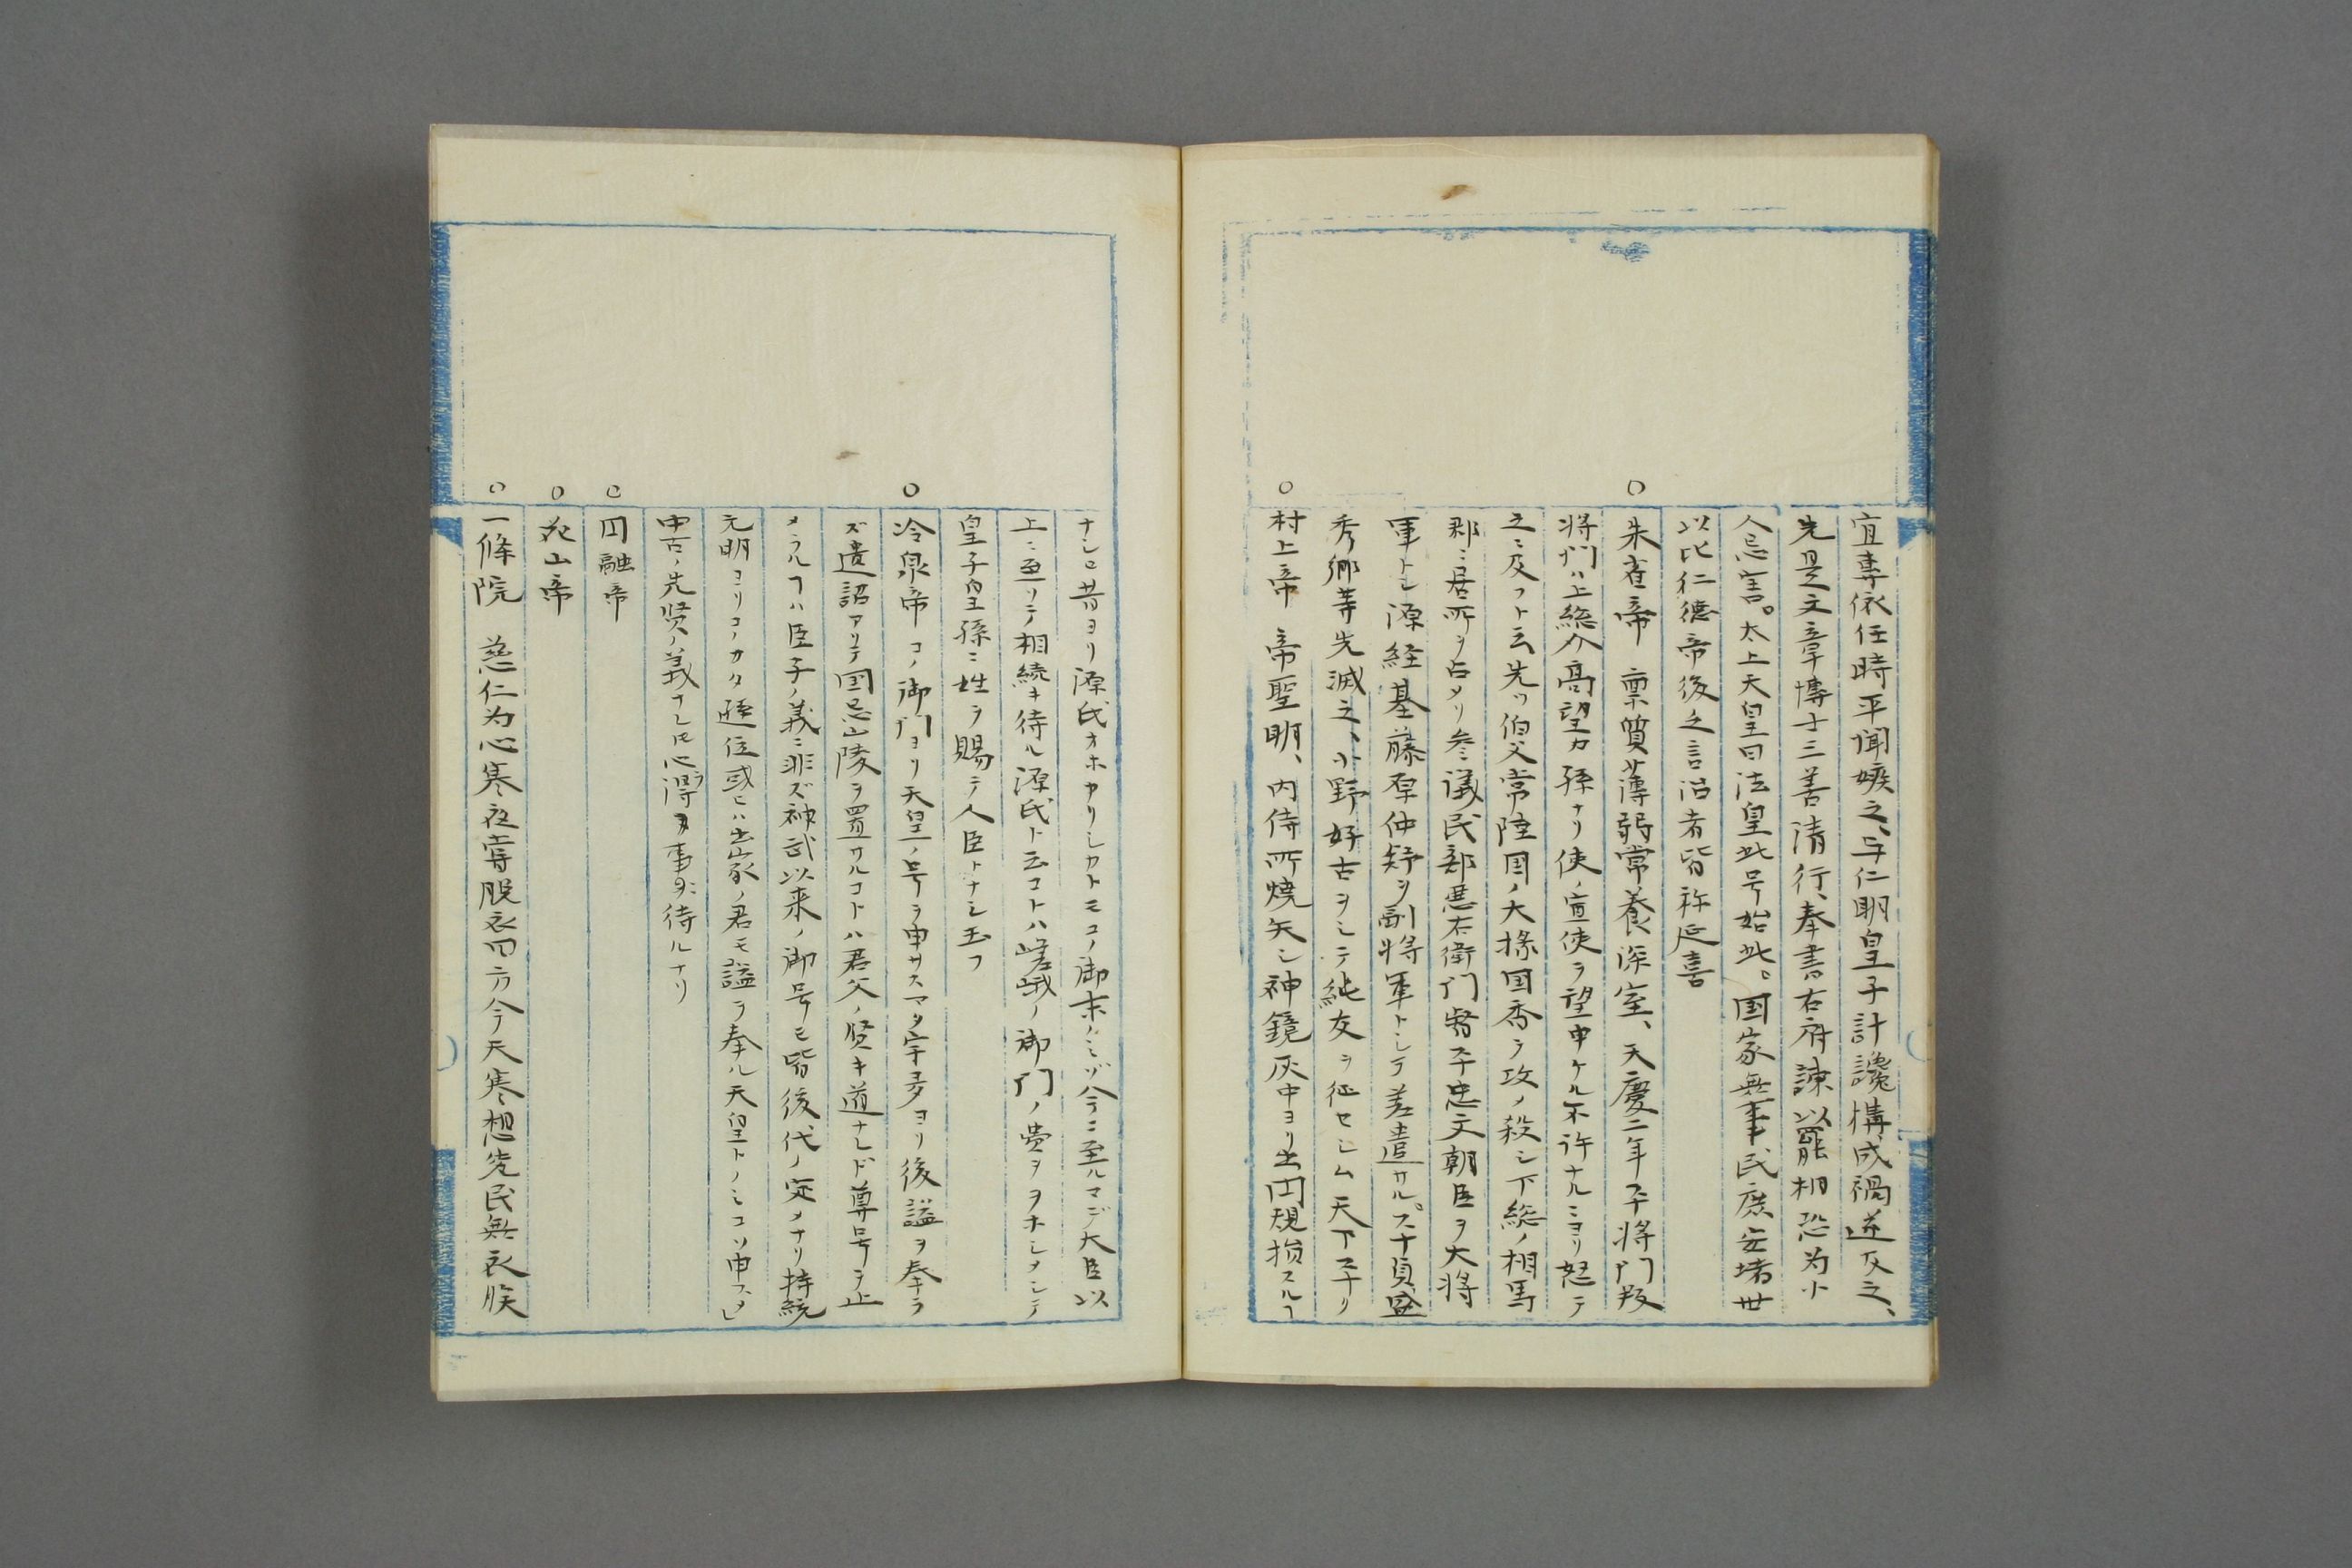 宜専依任時平聞嫉之、与仁明皇子計讒構成禍逆反之、
先是文章博士三善清行、奉書右府諫以罷相恐为小
人忌害。太上天皇曰法皇此号始此。国家無事民庶安堵世
以比仁徳帝後之言治者皆称延喜
○朱雀帝 禀質薄弱常養深室、天慶二年平将門叛
将門ハ上総介高望カ孫ナリ使ノ宣使ヲ望申ケル不許ナルニヨリ怒テ
之ニ及フト云先ツ伯父常陸国ノ大掾国香ヲ攻メ殺シ下総ノ相馬
郡ニ居所ヲ占メリ参議民部卿右衛門督平忠文朝臣ヲ大将
軍トシ源経基藤原仲舒ヲ副将軍トシテ差遣サル。平貞盛
秀郷等先滅之、小野好古ヲシテ純友ヲ征セシム天下平リ
○村上帝 帝聖明、内侍所焼矢シ神鏡灰中ヨリ出円規損スルヿ
ナシ○昔ヨリ源氏オホカリシカトモコノ御末ノミゾ今ニ至ルマデ大臣以
上ニ至リテ相続キ待ル源氏ト云コトハ嵯峨ノ御門ノ費ヲヲホシメシテ
皇子皇孫ニ姓ヲ賜テ人臣トナシ玉フ
○冷泉帝 コノ御門ヨリ天皇ノ号ヲ申サスマタ宇多ヨリ後諡ヲ奉ラ
ズ遺詔アリテ国忌山陵ヲ置サルコトハ君父ノ賢キ道ナレド尊号ヲ止
メラルヿハ臣子ノ義ニ非ズ神武以来ノ御号モ皆後代ノ定メナリ持統
元明ヨリコノカタ遜位或ヒハ出家ノ君モ諡ヲ奉ル天皇トノミコソ申スメレ
中古ノ先賢ノ義ナレ𪜈心得ヌ事ニ待ルナリ
○円融帝
○花山帝
○一條院 慈仁为心寒夜嘗脱衣曰方今天寒想究民無衣朕